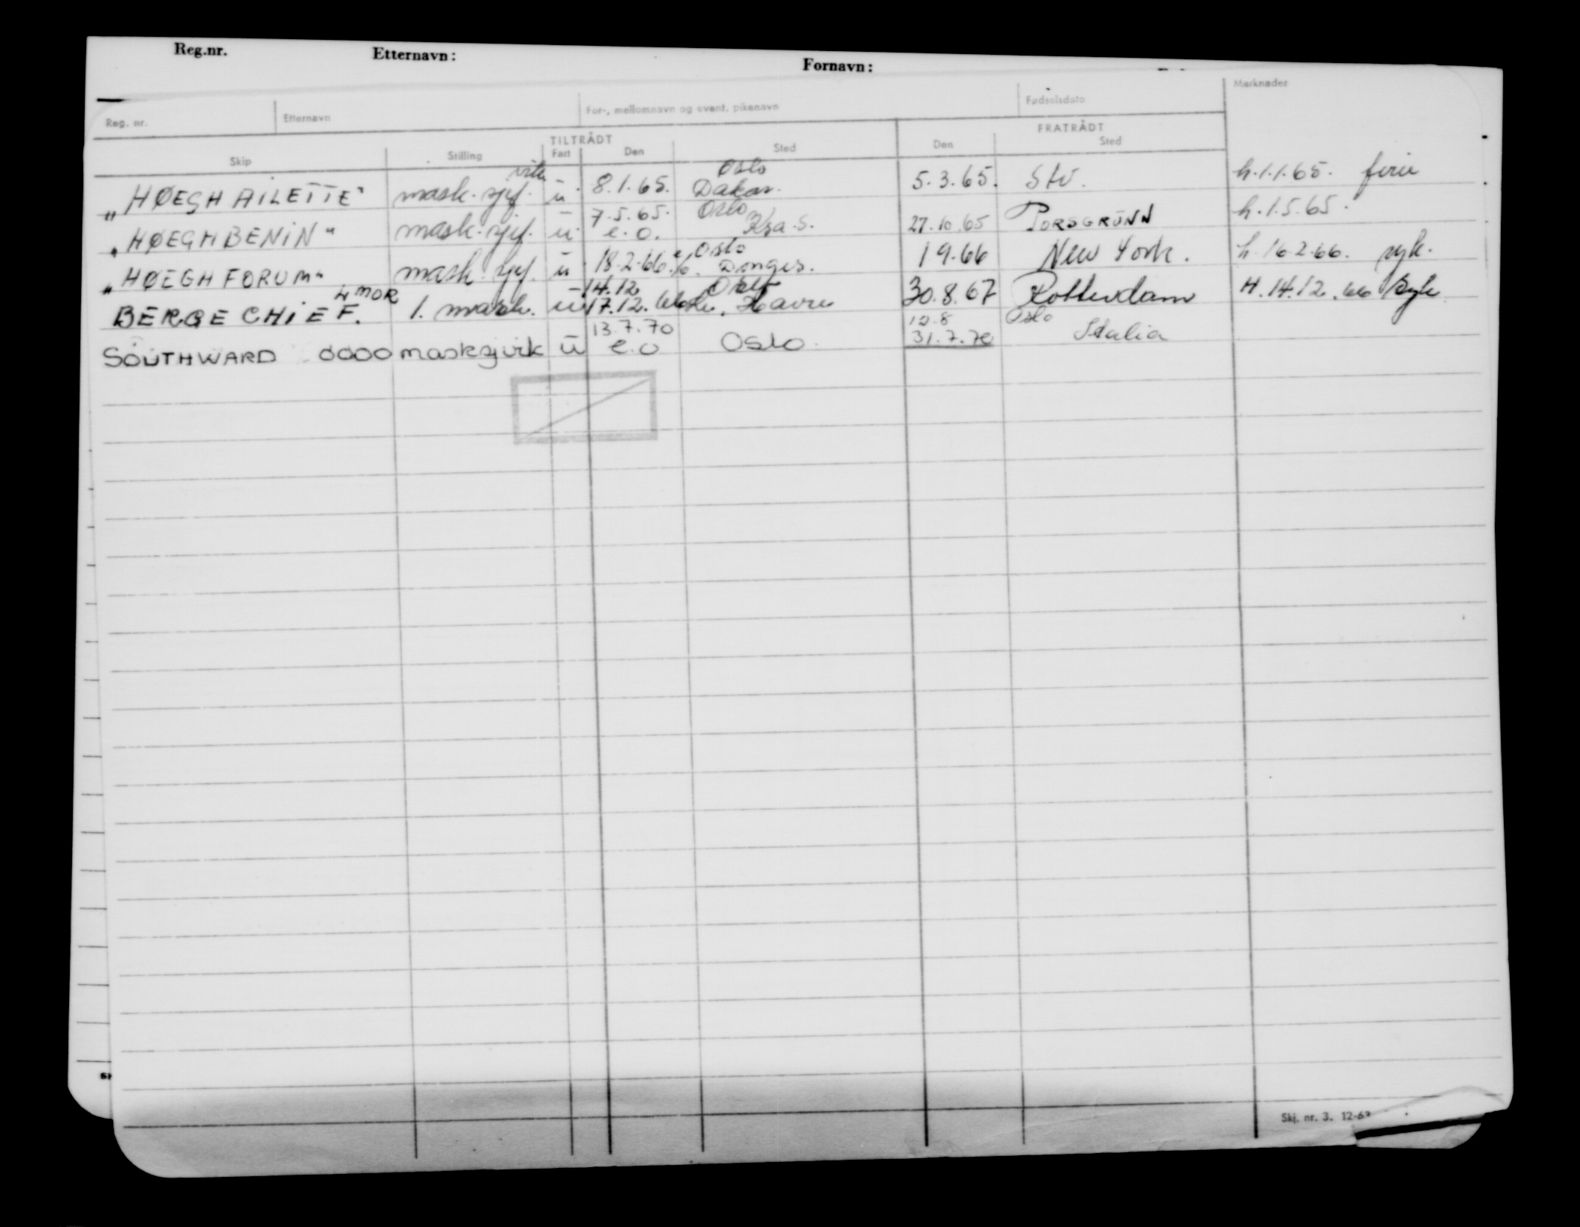 Reg.nr. Etternavn: Fornavn:
Merknader
Reg. nr. Etternavn For-, mellomnavn og event. pikenavn Fødselsdato
TILTRÅDT FRATRÅDT
Skip Stilling Fart Den Sted Den Sted
vik. Oslo
"HØEGH AILETTE" mask.sjef. u. 8.1.65. Dakar. 5.3.65. STV. h.1.1.65. ferie
7.5.65. Oslo h.1.5.65.
"HØEGH BENIN" mask.sjef. u. e.o. Kra.S. 27.10.65 PORSGRUNN
Oslo
"HØEGH FORUM" mask.sjef. u. 18.2.66. Donges. 1 9.66 New York. h.16.2.66. syk.
4 MOR 14.12 Oslo
BERGE CHIEF. 1. mask. u 17.12.66 Le Havre 30.8.67 Rotterdam H.14.12.66 Syk
13.7.70 12.8 Oslo
SOUTHWARD 0000 masksjvik u e.o Oslo. 31.7.70 Italia
Skj. nr. 3. 12-63